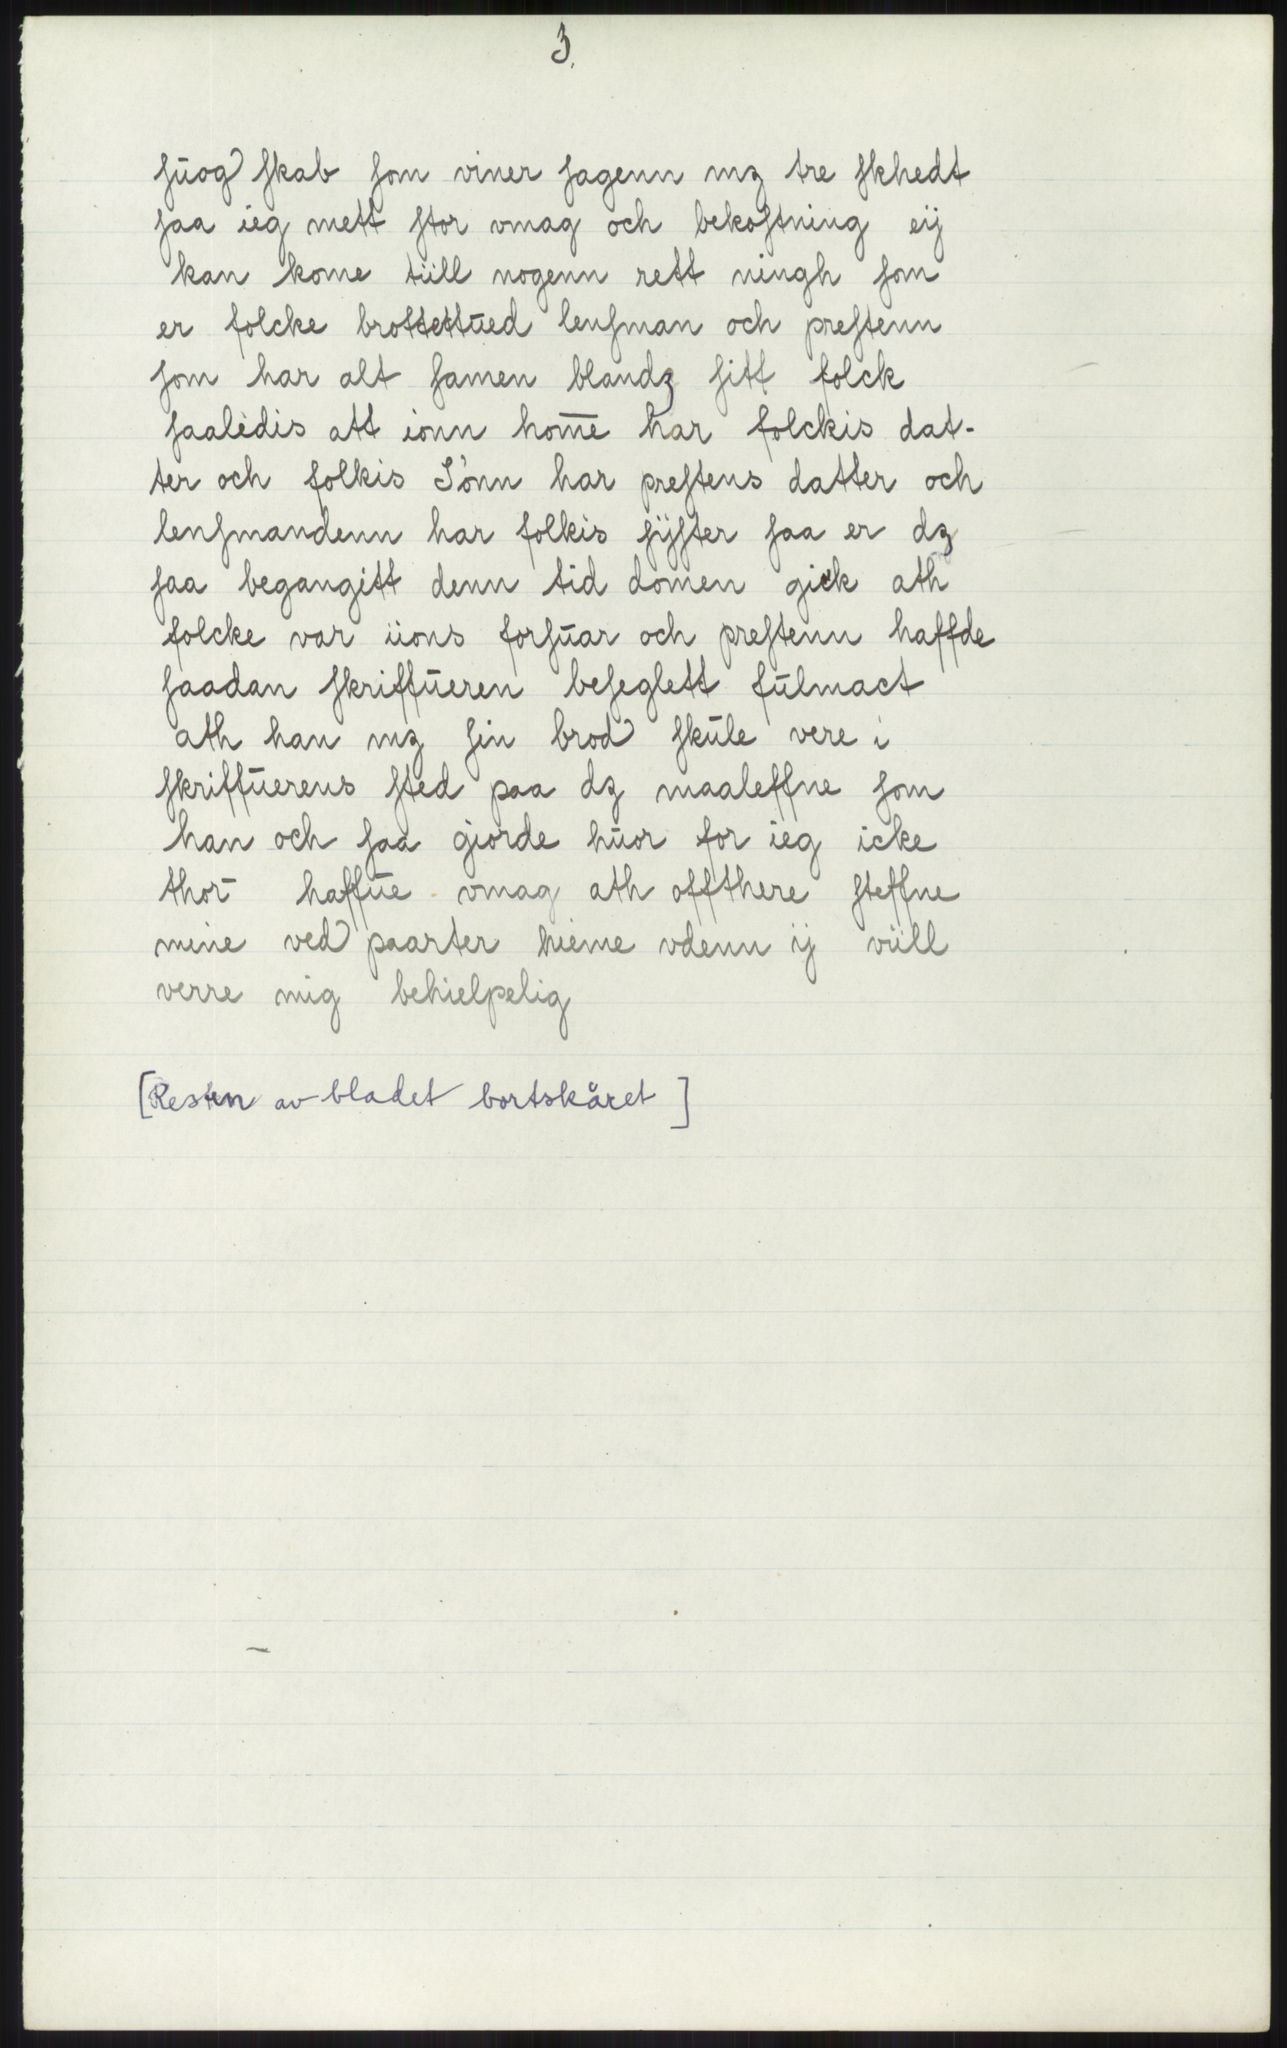 3.
suog skab som viner sagenn mz tre skhedt
saa ieg mett stor vmag och bekostning eij
kan kome tüll nogenn rett ningh som
er folcke brottettūed lensman och prestenn
som har alt samen blandz sitt folck
saaledis att ionn hom̅e har folckis dat-
ter och folkis Sönn har prestens datter och
lensmandenn har folkis sÿster saa er dz
saa begangitt denn tid domen gick ath
folcke var iions forsūar och prestenn haffde
saadan skriffūeren beseglett fūlmact
ath han mz sin brod skūle vere i
skriffūerens sted paa dz maaleffne som
han och saa giorde hūor for ieg icke
thor haffūe vmag ath offthere steffne
mine ved paarter hieme vdenn ij vüll
verre mig behielpelig
[Resten av bladet bortskåret]